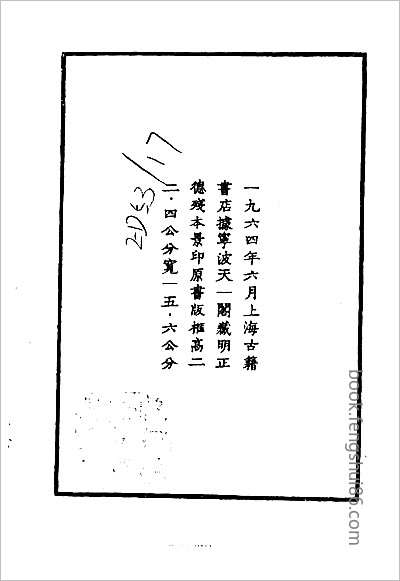 一九六四年六月上海古籍
書店據寧波天一閣藏明正
德殘本景印原書版框高二
二·四公分寬一五·六公分
book.fengshui86.com